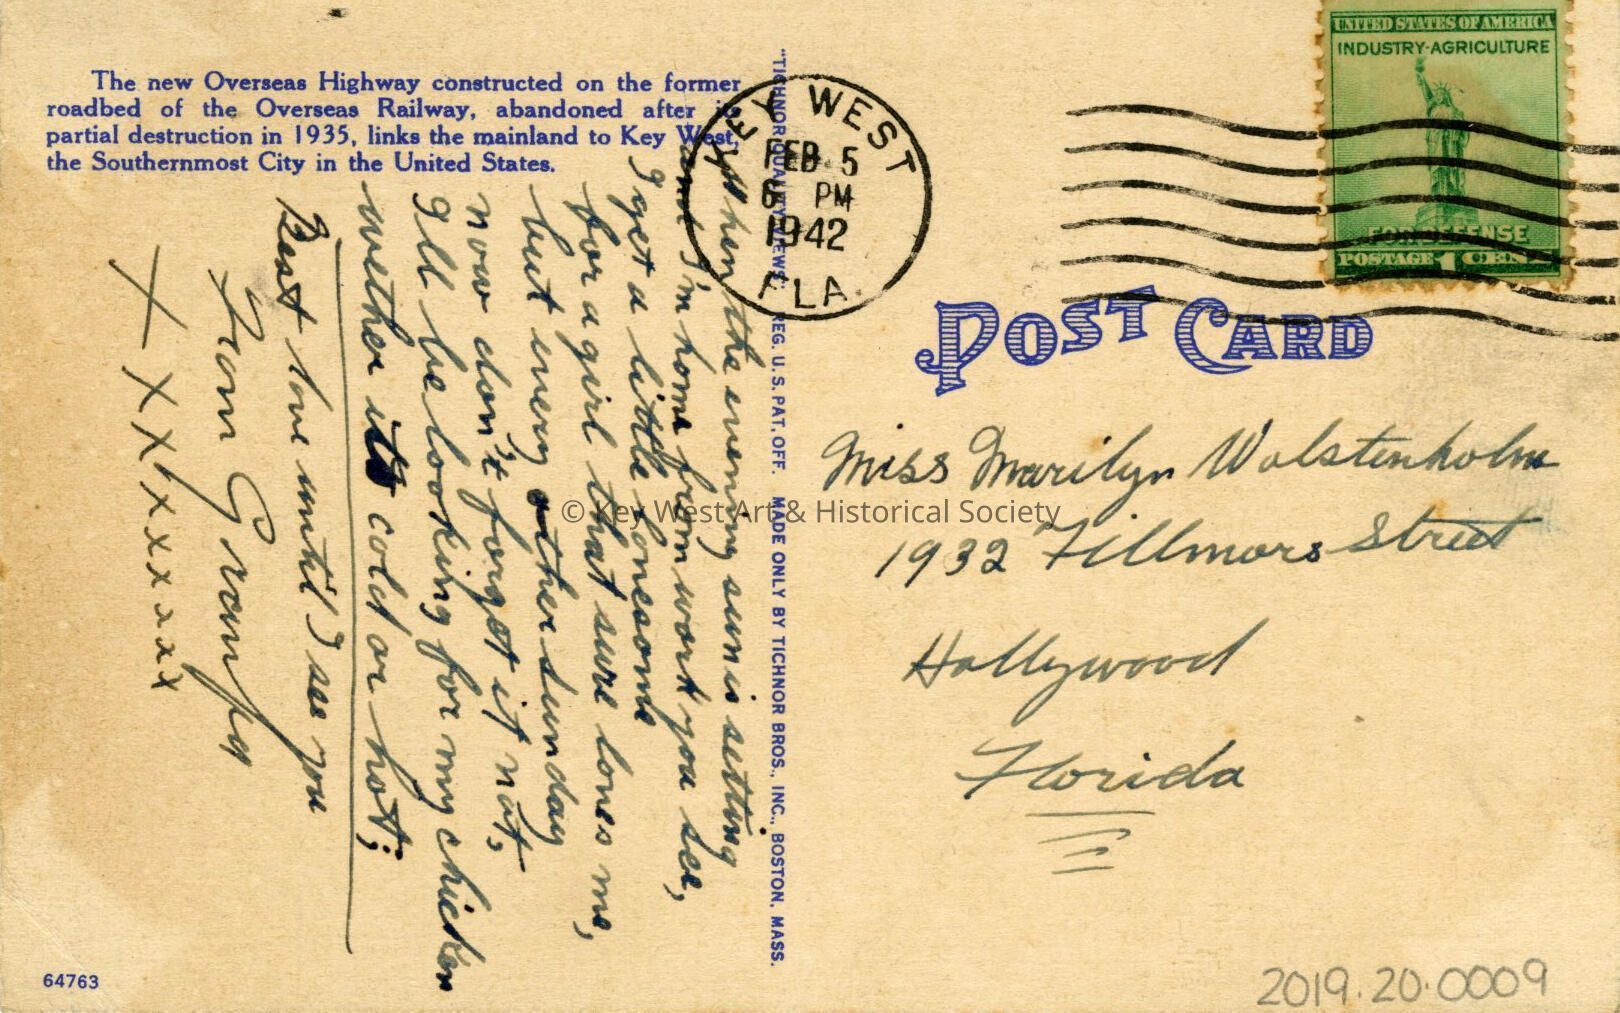 The new Overseas Highway constructed on the former
roadbed of the Overseas Railway, abandoned after its
partial destruction in 1935, links the mainland to Key West,
the Southernmost City in the United States.
When the evening sun is setting
and I'm home from work you see,
I get a little lonesome
for a girl that sure loves me,
but every other sunday
now don't forget it not,
I'll be looking for my chicken
wether its cold or hot;
Best love until I see you
From Grampy
X X X X X X X X
64763
"TICHNOR QUALITY VIEWS," REG. U.S. PAT. OFF. MADE ONLY BY TICHNOR BROS., INC., BOSTON, MASS.
KEY WEST
FEB 5
6 PM
1942
FLA.
UNITED STATES OF AMERICA
INDUSTRY-AGRICULTURE
FOR DEFENSE
POSTAGE 1 CENT
POST CARD
Miss Marilyn Wolstenholm
1932 Fillmore Street
Hollywood
Florida
© Key West Art & Historical Society
2019.20.0009